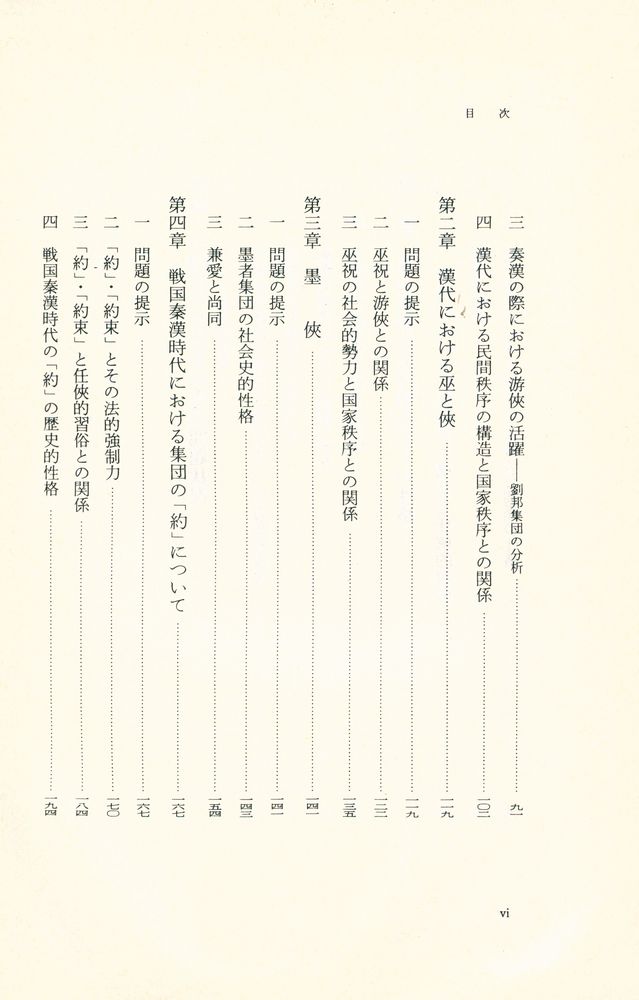 目次
三　秦漢の際における游俠の活躍——劉邦集団の分析……九一
四　漢代における民間秩序の構造と国家秩序との関係……一〇二
第二章　漢代における巫と俠……一一九
一　問題の提示……一一九
二　巫祝と游俠との関係……一二二
三　巫祝の社会的勢力と国家秩序との関係……一三五
第三章　墨　俠……一四一
一　問題の提示……一四一
二　墨者集団の社会史的性格……一四三
三　兼愛と尚同……一五四
第四章　戦国秦漢時代における集団の「約」について……一六七
一　問題の提示……一六七
二　「約」・「約束」とその法的強制力……一七〇
三　「約」・「約束」と任俠的習俗との関係……一八四
四　戦国秦漢時代の「約」の歴史的性格……一九四
vi